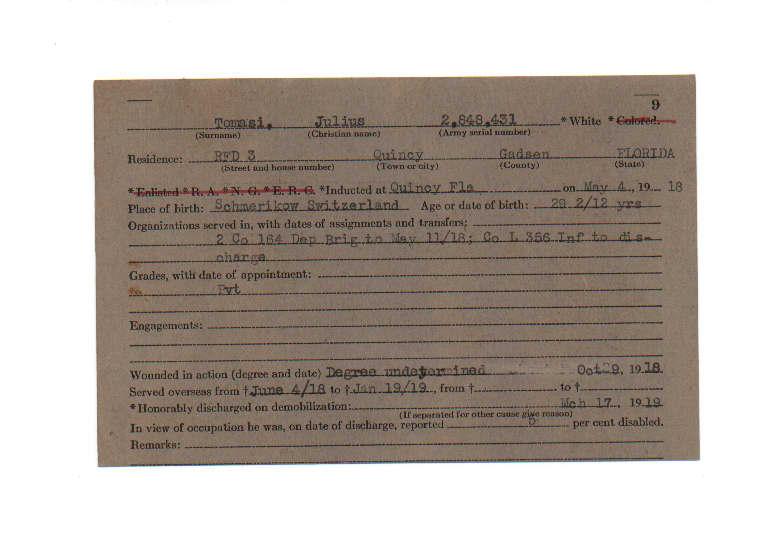 9
Tomasi, Julius 2,848,431 * White * Colored.
(Surname) (Christian name) (Army serial number)
Residence: RFD 3 Quincy Gadsen FLORIDA
(Street and house number) (Town or city) (County) (State)
* Enlisted * R. A. * N. G. * E. R. C. * Inducted at Quincy Fla on May 4, 19 18
Place of birth: Schmerikow Switzerland Age or date of birth: 29 2/12 yrs
Organizations served in, with dates of assignments and transfers:
2 Co 164 Dep Brig to May 11/18; Co L 356 Inf to dis-
charge
Grades, with date of appointment:
Pvt
Engagements:
Wounded in action (degree and date) Degree undetermined Oct 29, 19 18
Served overseas from † June 4/18 to † Jan 19/19, from † to †
* Honorably discharged on demobilization: Mch 17, 19 19
(If separated for other cause give reason)
In view of occupation he was, on date of discharge, reported per cent disabled.
Remarks: